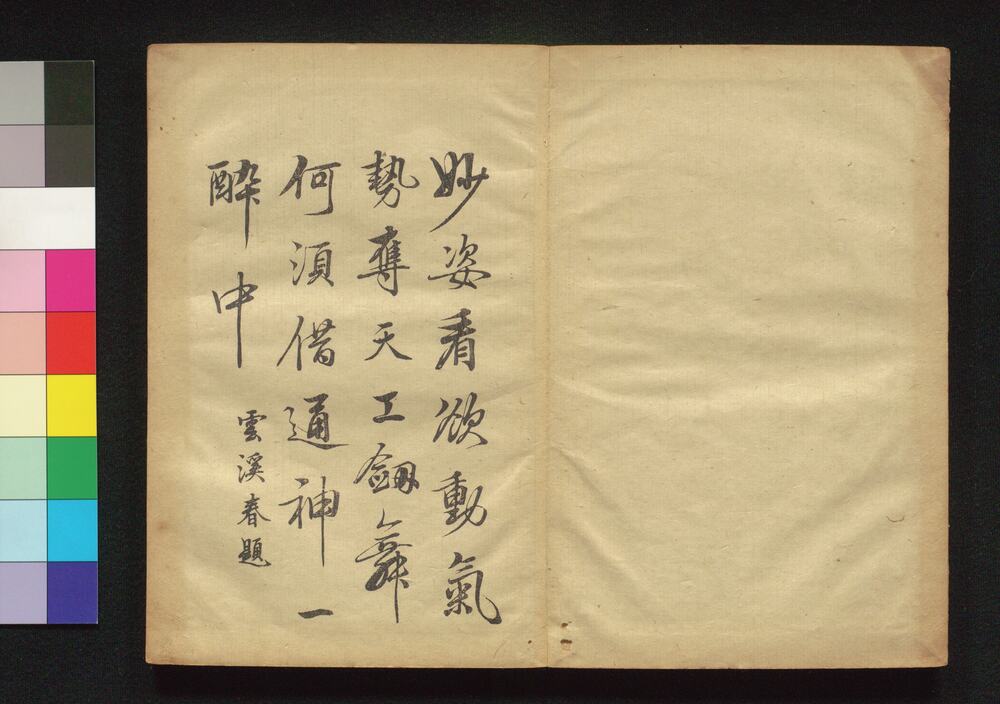 妙姿看欲動氣
勢奪天工劔舞
何須借通神一
酔中
雲溪春題